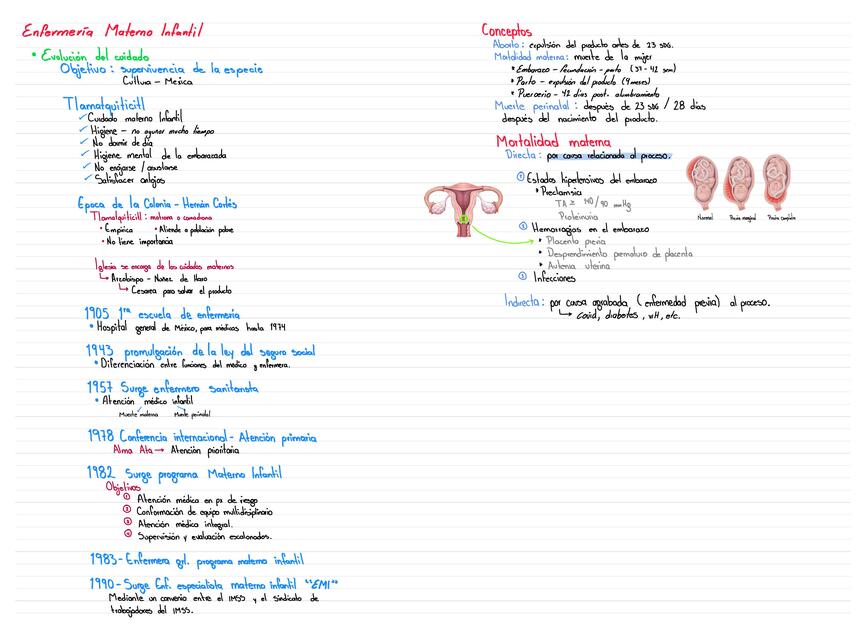 Enfermería Materno Infantil
• Evolución del cuidado
Objetivo: supervivencia de la especie
Cultura - Mexica
Tlamatquiticitl
✓ Cuidado materno Infantil
✓ Higiene - no ayunar mucho tiempo
✓ No dormir de día
✓ Higiene mental de la embarazada
✓ No enojarse / asustarse
✓ Satisfacer antojos
Epoca de la Colonia - Hernán Cortés
Tlamatquiticitl: matrona o comadrona
• Empírica • Atiende a población pobre
• No tiene importancia
Iglesia se encarga de los cuidados maternos
↳ Arzobispo - Nuñez de Haro
↳ Cesarea para salvar el producto
1905 1ra escuela de enfermería
• Hospital general de México, para médicos hasta 1974
1943 promulgación de la ley del seguro social
• Diferenciación entre funciones del médico y enfermera.
1957 Surge enfermero sanitarista
• Atención médico infantil
Muerte materna Muerte perinatal
1978 Conferencia internacional - Atención primaria
Alma Ata → Atención prioritaria
1982 Surge programa Materno Infantil
Objetivos
① Atención médica en px de riesgo
② Conformación de equipo multidisciplinario
③ Atención médica integral.
④ Supervisión y evaluación escalonados.
1983 - Enfermera grl. programa materno infantil
1990 - Surge Enf. especialista materno infantil "EMI"
Mediante un convenio entre el IMSS y el sindicato de
trabajadores del IMSS.
Conceptos
Aborto: expulsión del producto antes de 23 sdg.
Mortalidad materna: muerte de la mujer
• Embarazo - fecundación - parto (37 - 42 sem)
• Parto - expulsión del producto (9 meses)
• Puerperio - 42 días post. alumbramiento
Muerte perinatal: después de 23 sdg / 28 días
después del nacimiento del producto.
Mortalidad materna
Directa: por causa relacionada al proceso.
① Estados hipertensivos del embarazo
• Preclamsia
TA ≥ 140/90 mmHg
Proteinuria
② Hemorragias en el embarazo
• Placenta previa
• Desprendimiento prematuro de placenta
• Autema uterina
③ Infecciones
Normal Previa marginal Previa completa
Indirecta: por causa agrabada (enfermedad previa) al proceso.
↳ Covid, diabetes, VIH, etc.